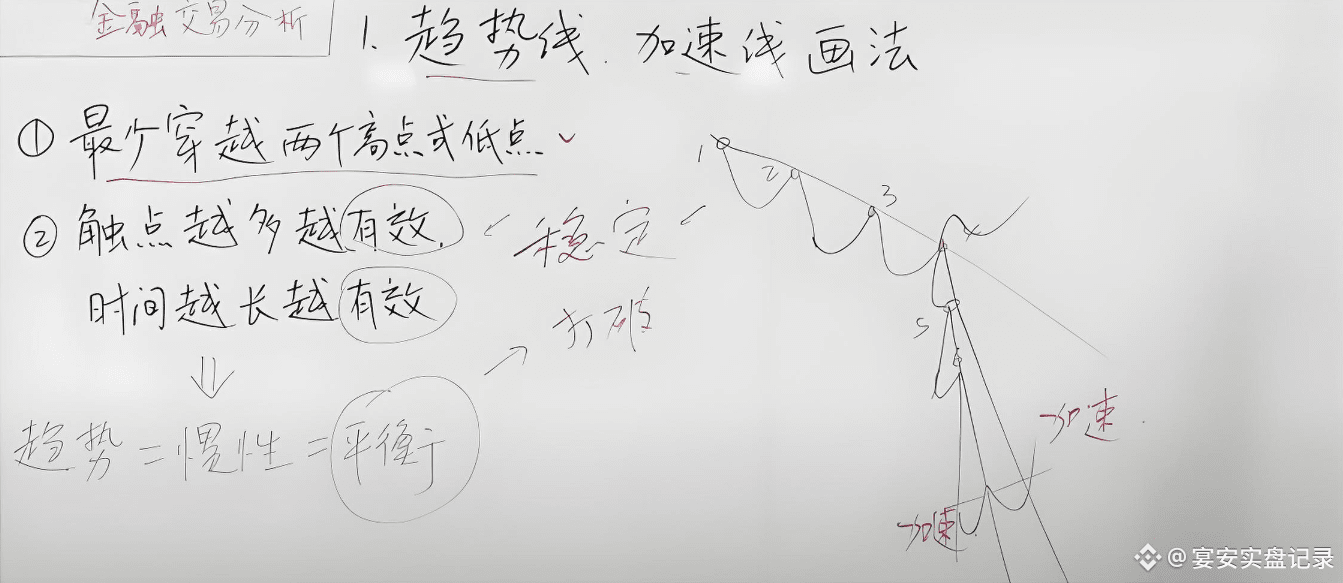 金融交易分析
1. 趋势线.加速线画法
① 最少穿越两个高点或低点
② 触点越多越有效.
时间越长越有效
趋势=惯性=平衡
稳定
打破
1
2
3
4
5
加速
加速
@宴安实盘记录